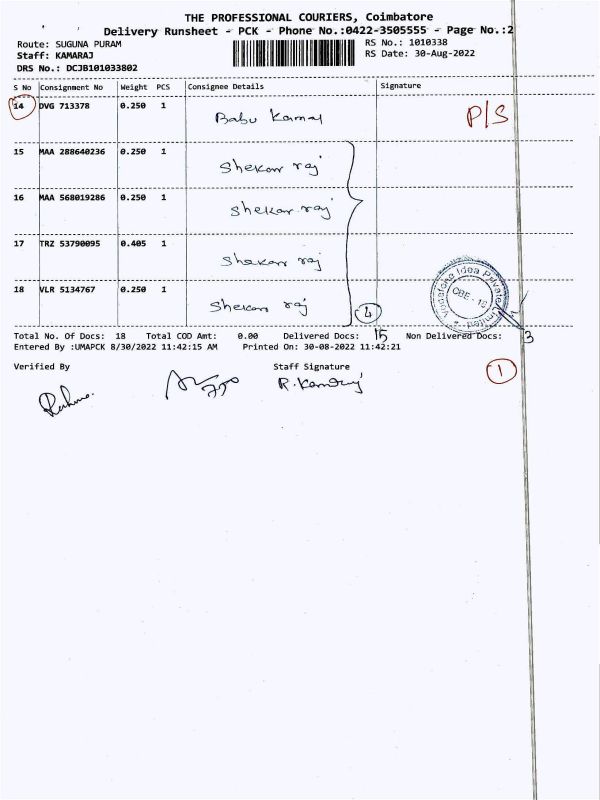 THE PROFESSIONAL COURIERS, Coimbatore
Delivery Runsheet - PCK - Phone No.:0422-3505555 - Page No.:2
Route: SUGUNA PURAM
Staff: KAMARAJ
DRS No.: DCJB101033802
RS No.: 1010338
RS Date: 30-Aug-2022
S No Consignment No Weight PCS Consignee Details Signature
14 DVG 713378 0.250 1 Babu Kamal P/S
15 MAA 288640236 0.250 1 Shekar raj
16 MAA 568019286 0.250 1 Shekar raj
17 TRZ 53790095 0.405 1 Shekar raj
18 VLR 5134767 0.250 1 Shekar raj
4
Vodafone Idea Private Limited
CBE - 18
Total No. Of Docs: 18 Total COD Amt: 0.00 Delivered Docs: 15 Non Delivered Docs: 3
Entered By :UMAPCK 8/30/2022 11:42:15 AM Printed On: 30-08-2022 11:42:21
Verified By Staff Signature 1
R. Kamaraj